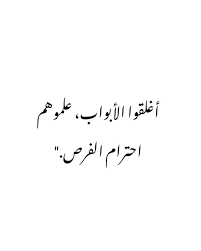 أغلقوا الأبواب، علموهم
احترام الفرص."